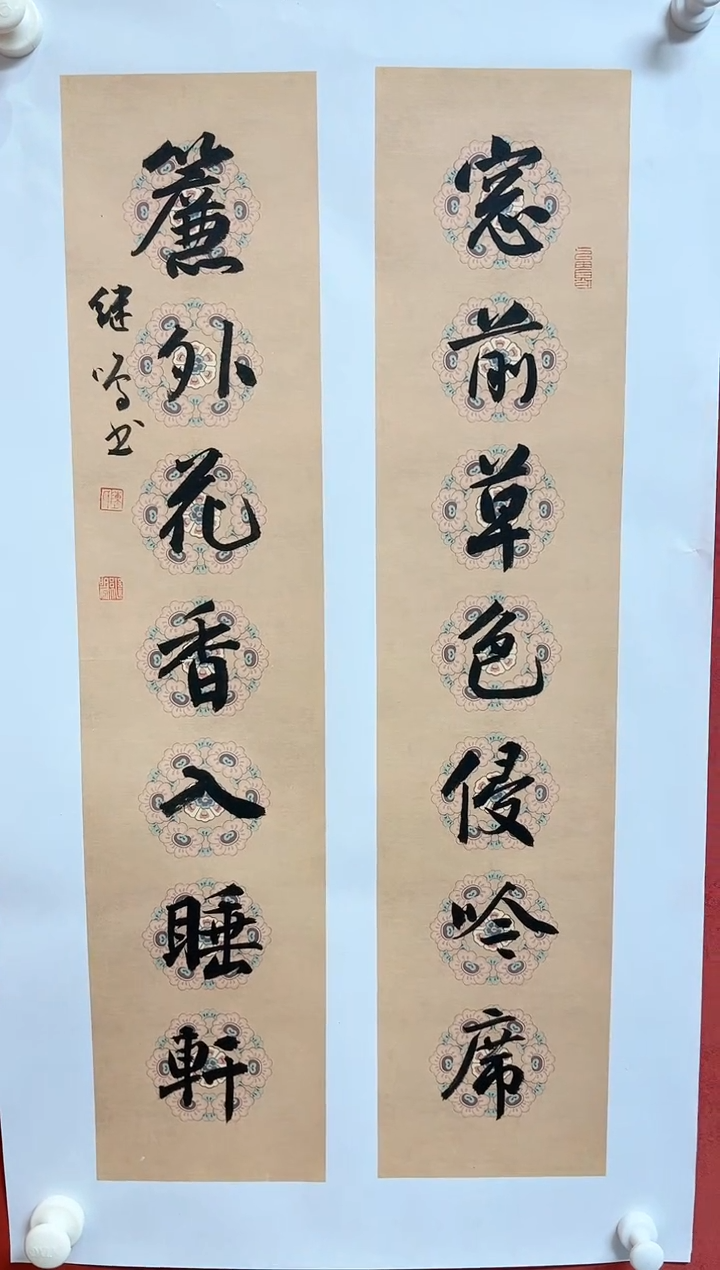 窓前草色侵吟席
簾外花香入睡軒
继鸣书